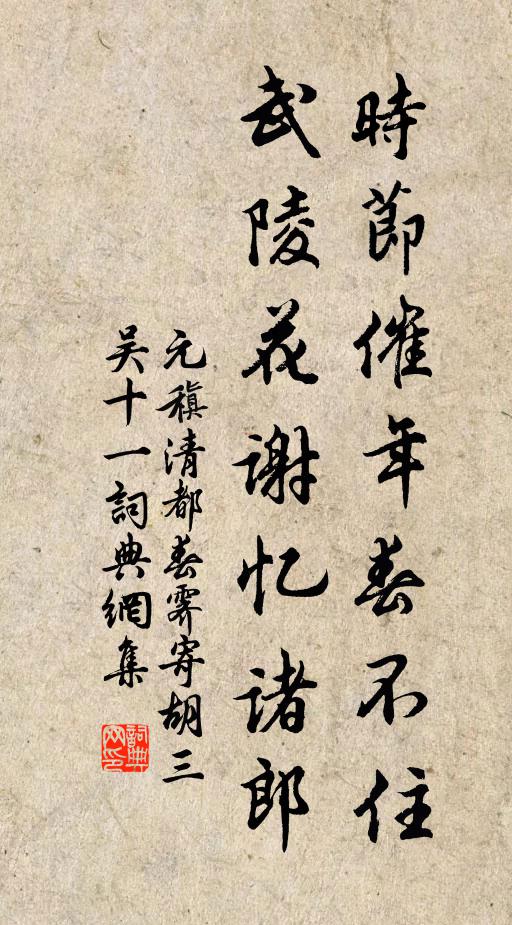 時節催年春不住
武陵花謝忆諸郎
元稹清都春霽寄胡三
吴十一詞典網集
詞典网印